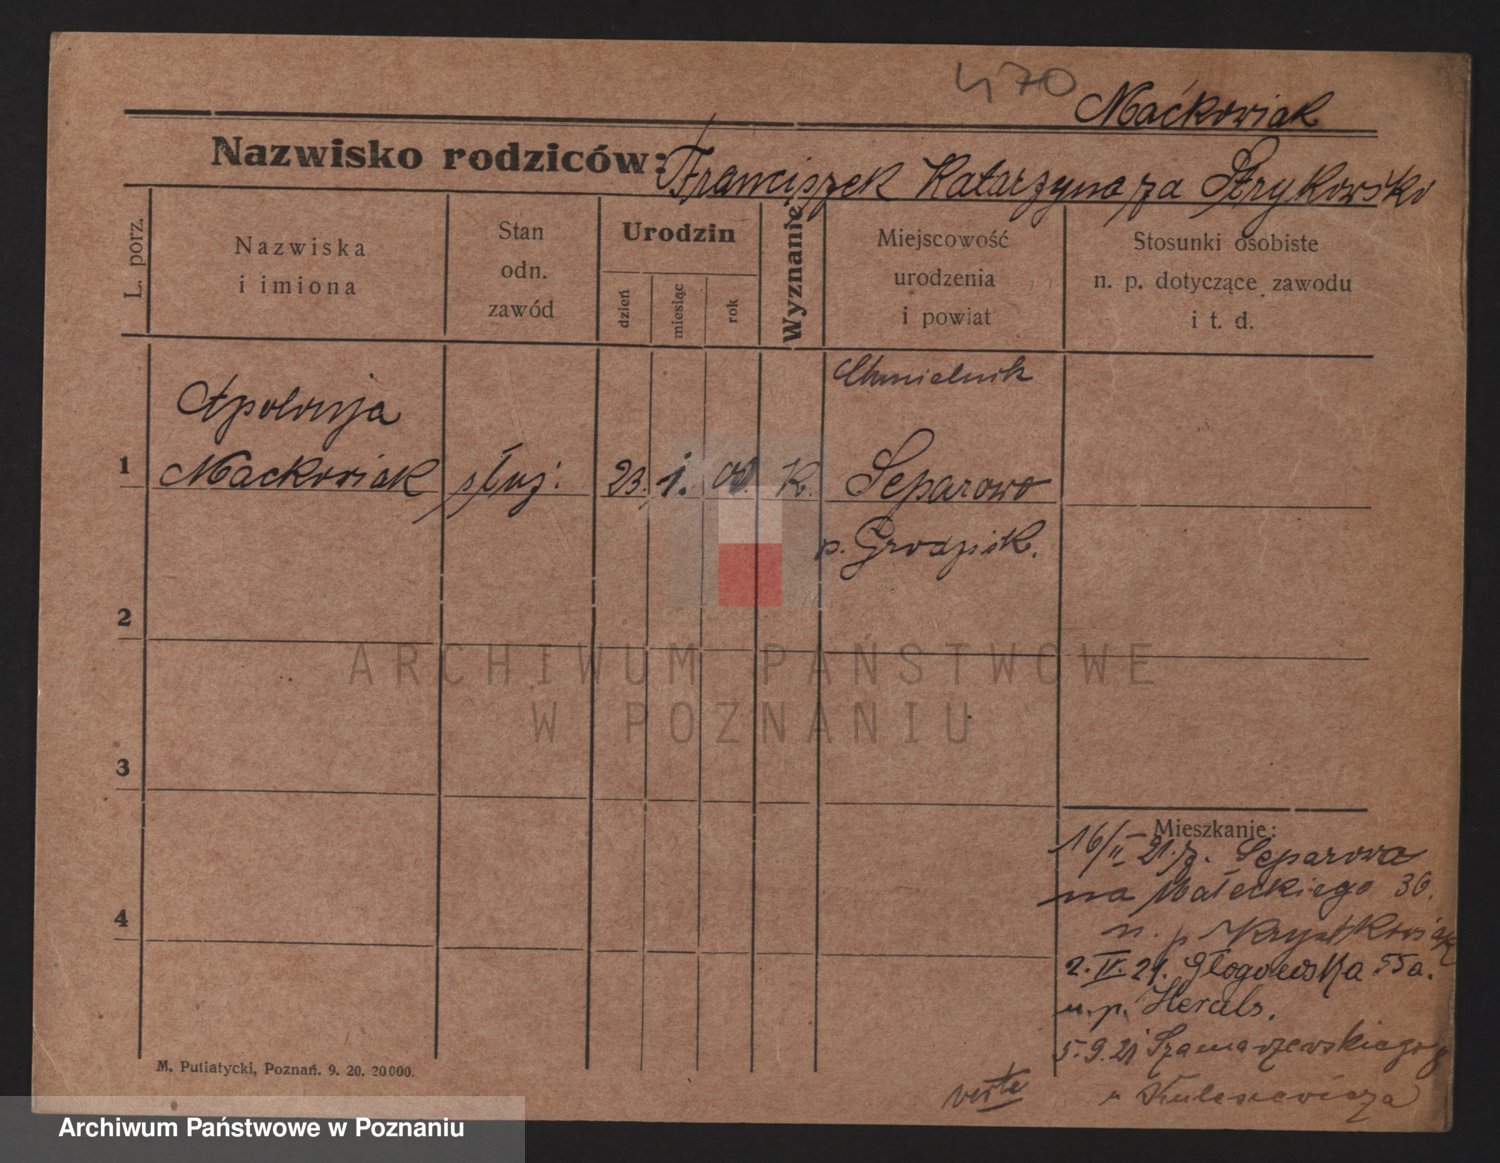 470
Maćkowiak
Nazwisko rodziców: Franciszek Katarzyna za Strykowska
L. porz.
Nazwiska
i imiona
Stan
odn.
zawód
Urodzin
dzień
miesiąc
rok
Wyznanie
Miejscowość
urodzenia
i powiat
Stosunki osobiste
n. p. dotyczące zawodu
i t. d.
Chmielnik
Apolonja
1 Maćkowiak służ: 23. 1. 00. K. Separowo
p. Grodzisk.
2
3
4
ARCHIWUM PAŃSTWOWE
W POZNANIU
Mieszkanie:
16/II 21. z. Separowa
na Małeckiego 36.
n. p.
2. IV. 21. Głogowska 55a.
u. p.
5.9.21 Szamarzewskiego
u Kulesiewicza
verte
M. Putiatycki, Poznań. 9. 20. 20000.
Archiwum Państwowe w Poznaniu